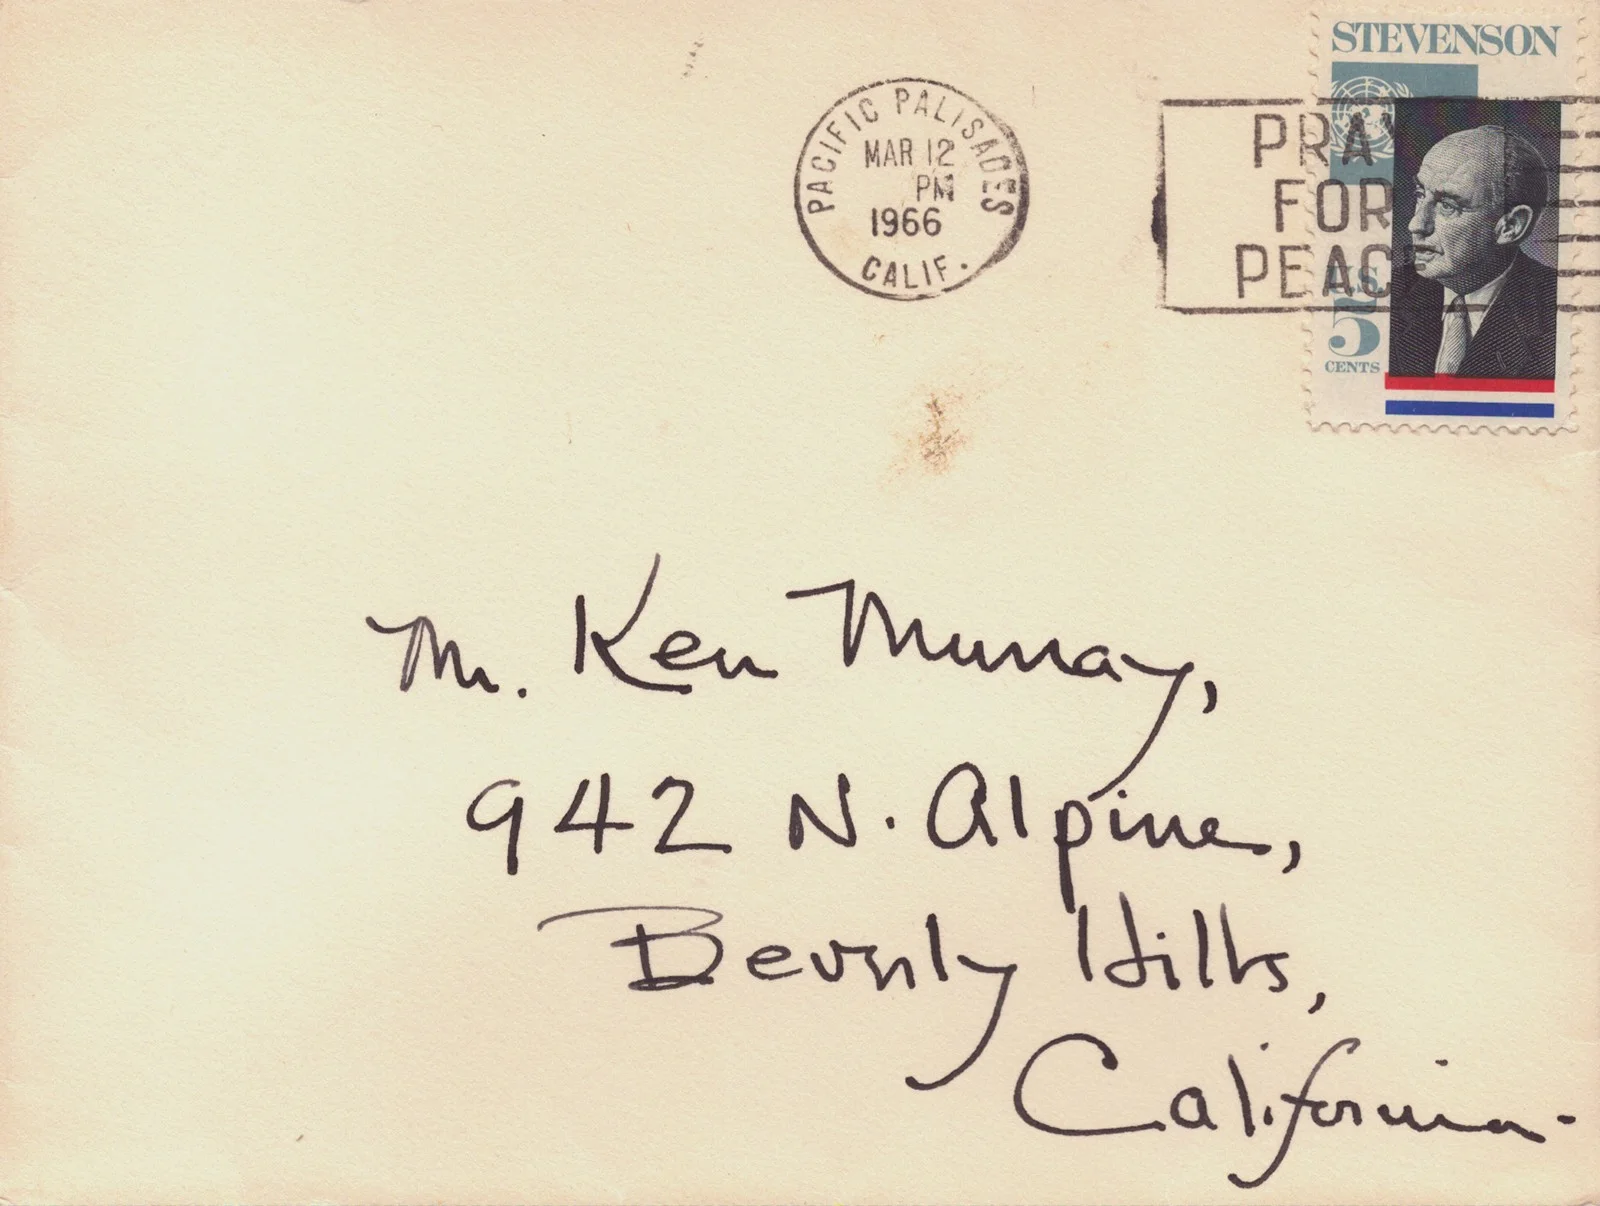 STEVENSON
PACIFIC PALISADES
MAR 12
PM
1966
CALIF.
PRAY
FOR
PEACE
U.S.
5
CENTS
Mr. Ken Murray,
942 N. Alpine,
Beverly Hills,
California-